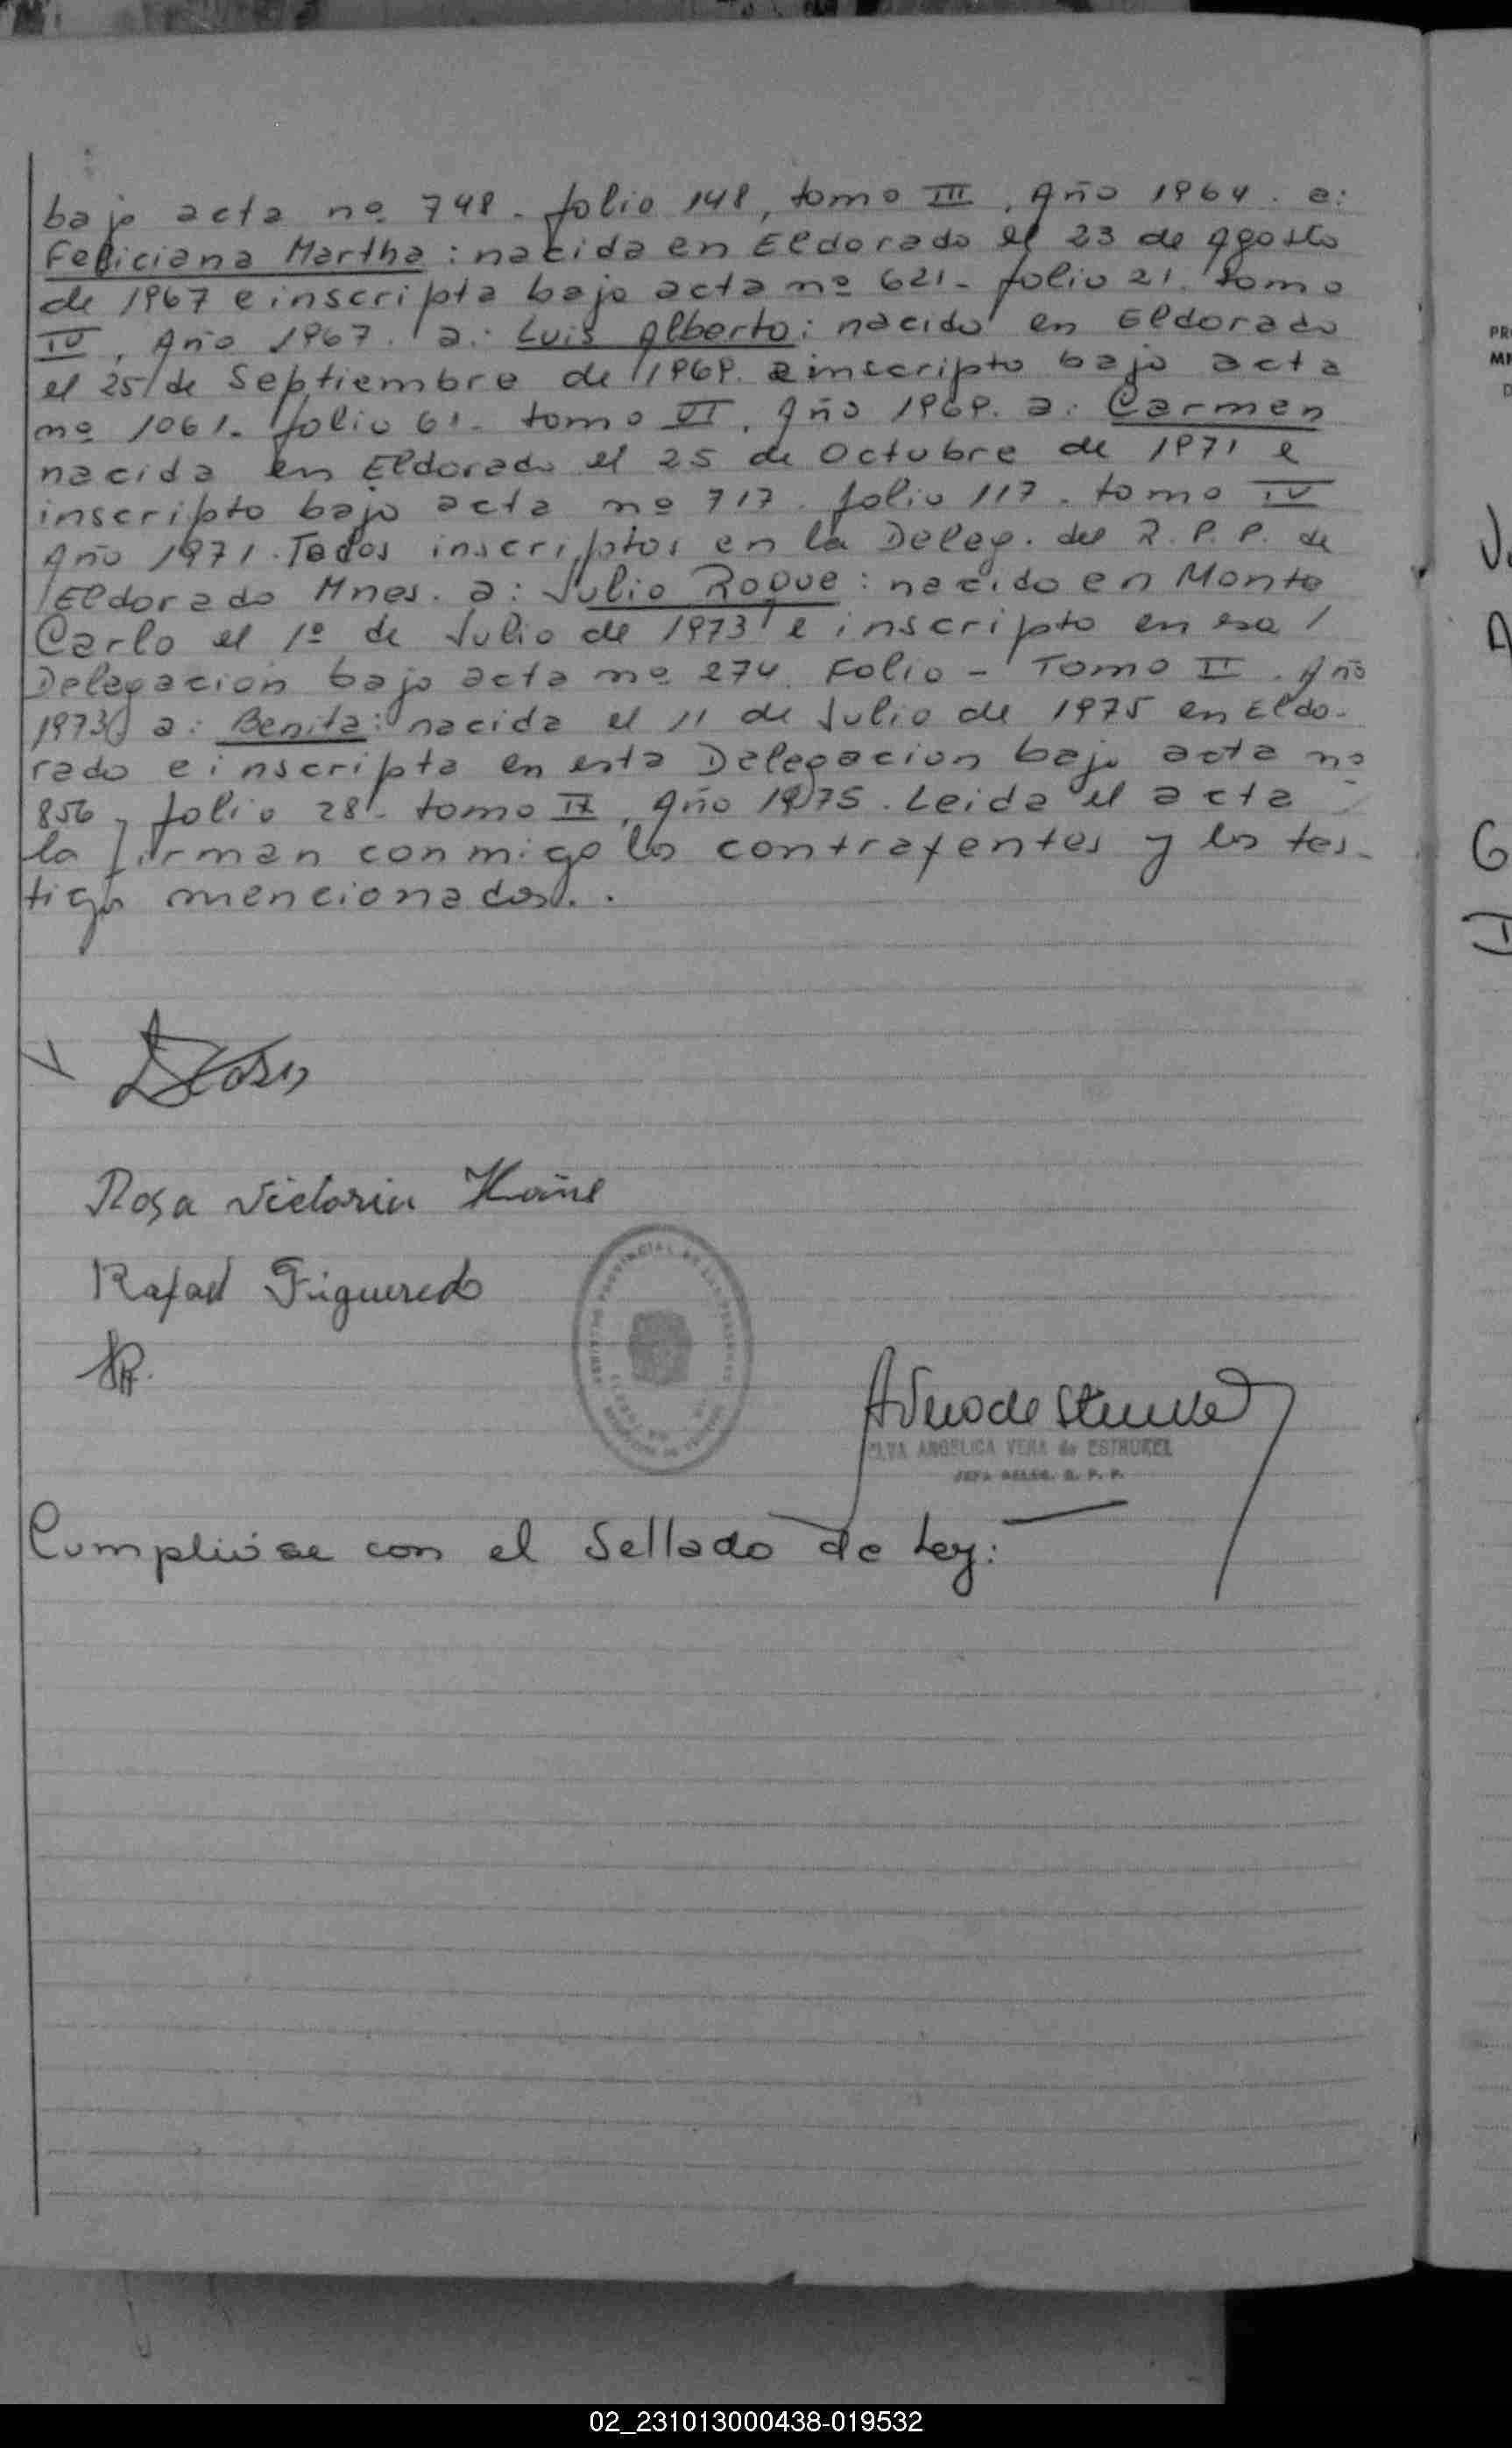 bajo acta nº 748. folio 148, tomo III, Año 1964. a:
Feliciana Martha: nacida en Eldorado el 23 de Agosto
de 1967 e inscripta bajo acta nº 621- folio 21. tomo
IV, Año 1967. a: Luis Alberto: nacido en Eldorado
el 25/de Septiembre de 1969. e inscripto bajo acta
nº 1061- folio 61- tomo VI, Año 1969. a: Carmen
nacida en Eldorado el 25 de Octubre de 1971 e
inscripto bajo acta nº 717. folio 117. tomo IV
Año 1971. Todos inscriptos en la Deleg. del R.P.P. de
Eldorado Mnes. a: Julio Roque: nacido en Monte
Carlo el 1º de Julio de 1973 e inscripto en esa /
Delegación bajo acta nº 274. Folio - Tomo II. Año
1973, a: Benita: nacida el 11 de Julio de 1975 en Eldo-
rado e inscripta en esta Delegacion bajo acta nº
856, folio 28- tomo, Año 1975. Leida el acta
la firman conmigo los contrayentes y los tes-
tigos mencionados..
Rosa Victoria
Rafael Figueredo
ELVA ANGELICA VERA de ESTRUKEL
JEFA DELEG. R. P. P.
Cumplióse con el Sellado de Ley:
PR
MI
D
G
02_231013000438-019532